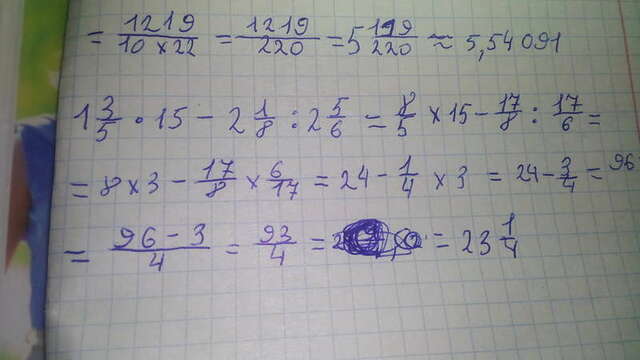 = 1219/10 × 22 = 1219/220 = 5 119/220 ≈ 5,54091
1 3/5 · 15 - 2 1/8 : 2 5/6 = 8/5 × 15 - 17/8 : 17/6 =
= 8 × 3 - 17/8 × 6/17 = 24 - 1/4 × 3 = 24 - 3/4 = 96
= 96 - 3/4 = 93/4 = = 23 1/4